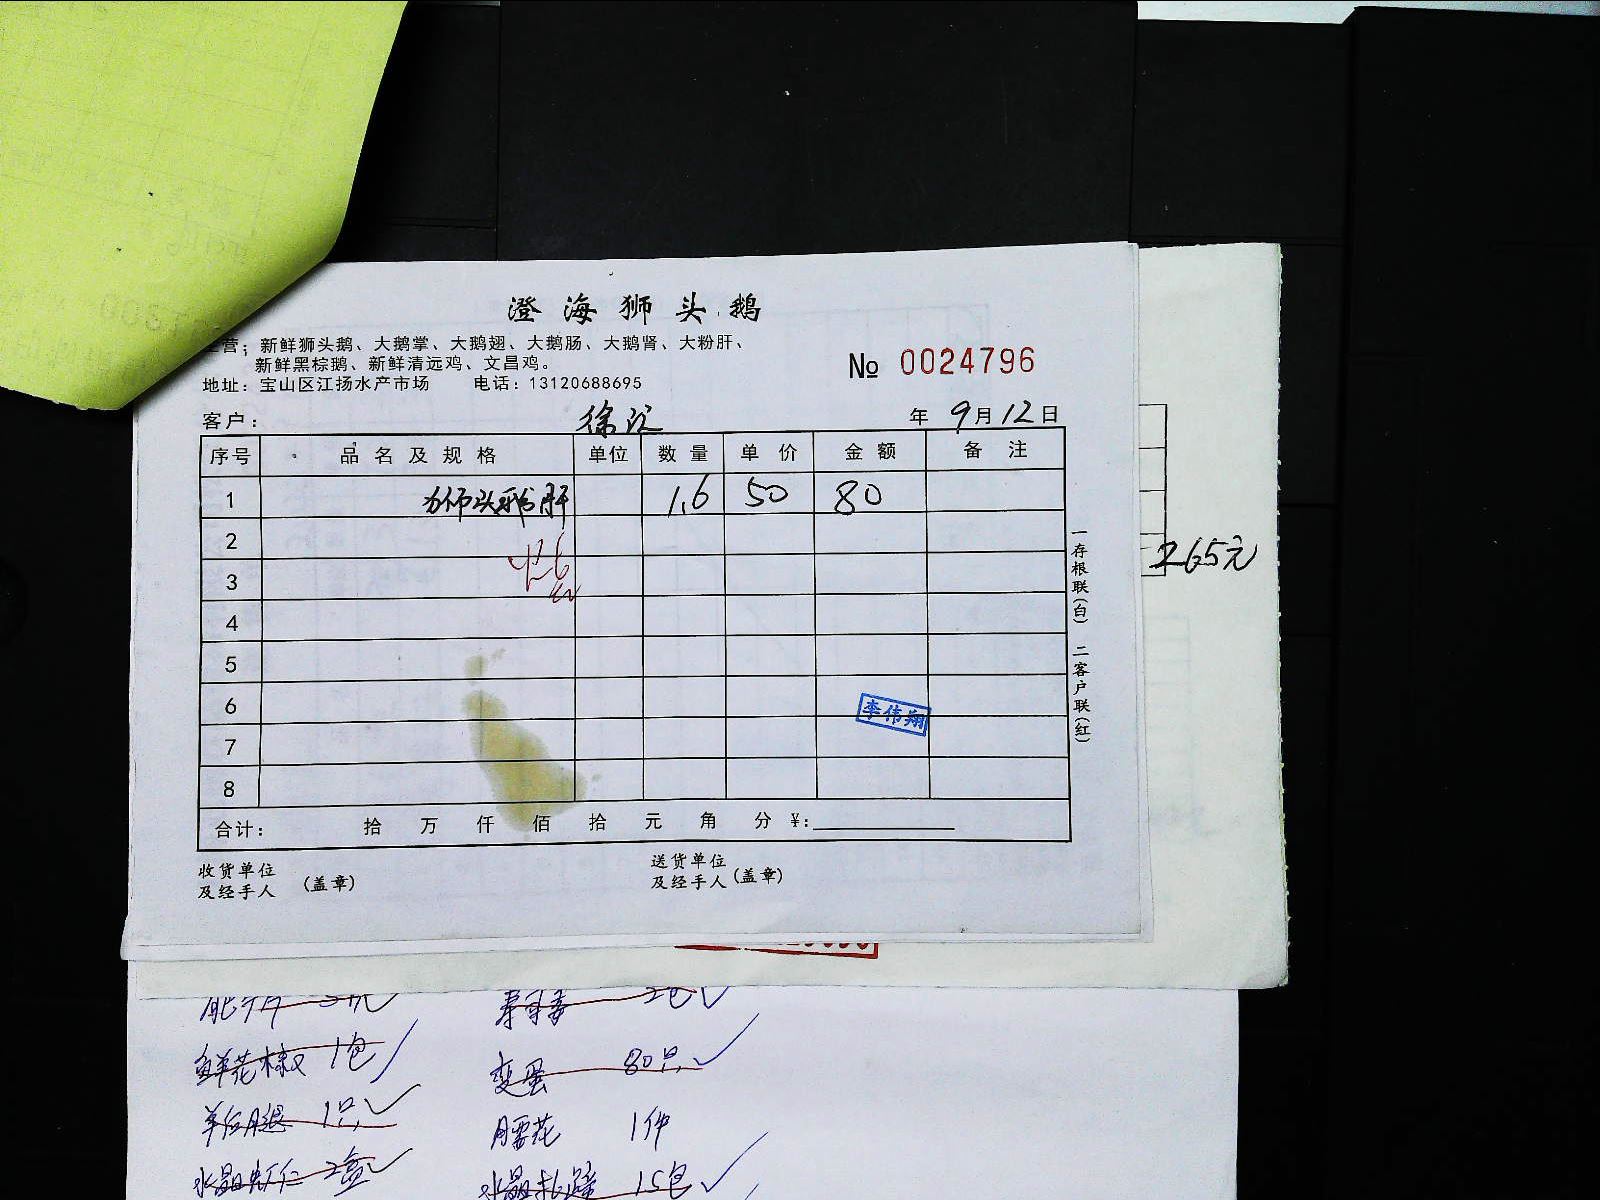 澄海狮头鹅
营：新鲜狮头鹅、大鹅掌、大鹅翅、大鹅肠、大鹅肾、大粉肝、
新鲜黑棕鹅、新鲜清远鸡、文昌鸡。
地址：宝山区江扬水产市场 电话：13120688695
№ 0024796
客户： 徐汇 年 9月12日
序号 品名及规格 单位 数量 单价 金额 备注
1 狮头鹅肝 1.6 50 80
2
3
4
5
6 李伟翔
7
8
合计： 拾 万 仟 佰 拾 元 角 分 ¥:
收货单位
及经手人 (盖章)
送货单位
及经手人 (盖章)
一存根联(白) 二客户联(红)
265元
鲜花椒 1包
变蛋 80只
羊后腿 1只
腰花 1件
水晶虾仁 2盒
15包